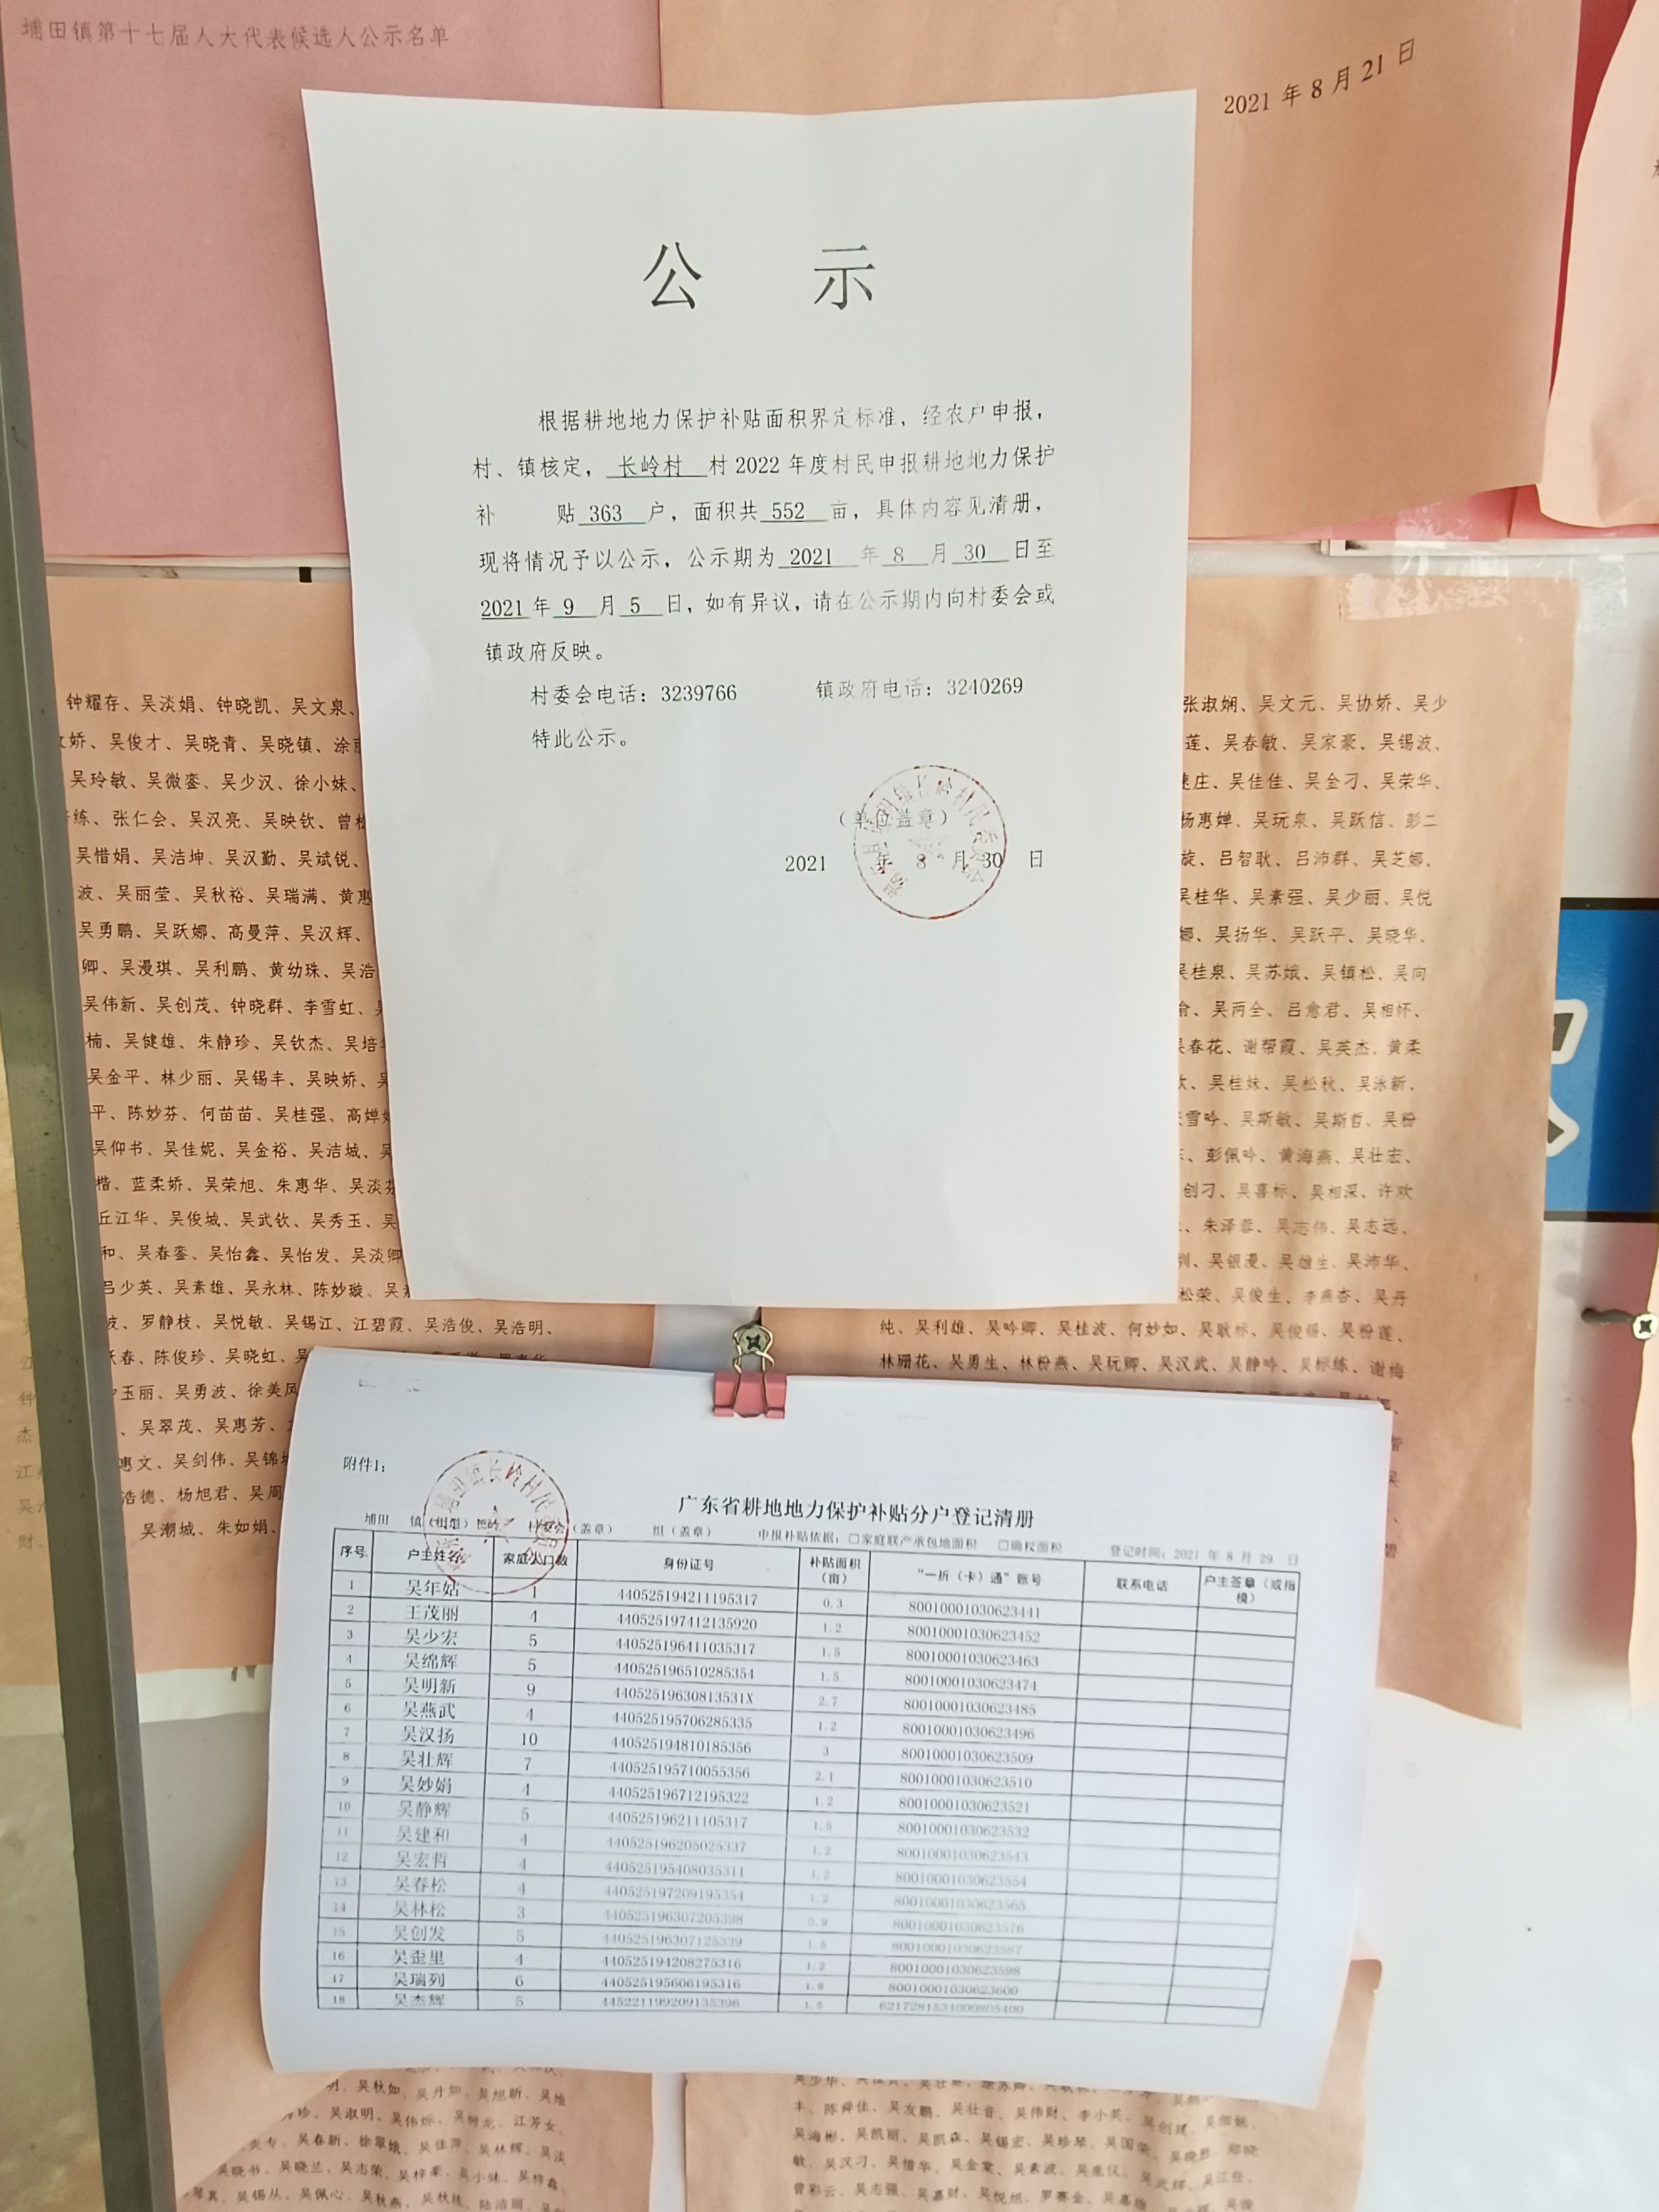 埔田镇第十七届人大代表候选人公示名单
2021 年 8 月 21 日
公 示
根据耕地地力保护补贴面积界定标准，经农户申报，
村、镇核定，长岭村 村 2022 年度村民申报耕地地力保护
补 贴 363 户，面积共 552 亩，具体内容见清册，
现将情况予以公示，公示期为 2021 年 8 月 30 日至
2021 年 9 月 5 日，如有异议，请在公示期内向村委会或
镇政府反映。
村委会电话：3239766 镇政府电话：3240269
特此公示。
（单位盖章）
2021 年 8 月 30 日
钟耀存、吴淡娟、钟晓凯、吴文泉、
娇、吴俊才、吴晓青、吴晓镇、涂
吴玲敏、吴微銮、吴少汉、徐小妹、
练、张仁会、吴汉亮、吴映钦、曾
吴惜娟、吴洁坤、吴汉勤、吴斌锐、
波、吴丽莹、吴秋裕、吴瑞满、黄惠
吴勇鹏、吴跃娜、高曼萍、吴汉辉、
卿、吴漫琪、吴利鹏、黄幼珠、吴浩
吴伟新、吴创茂、钟晓群、李雪虹、
楠、吴健雄、朱静珍、吴钦杰、吴培
吴金平、林少丽、吴锡丰、吴映娇、
平、陈妙芬、何苗苗、吴桂强、高婵
吴仰书、吴佳妮、吴金裕、吴洁城、
楷、蓝柔娇、吴荣旭、朱惠华、吴淡
丘江华、吴俊城、吴武钦、吴秀玉、吴
和、吴春銮、吴怡鑫、吴怡发、吴淡卿
吕少英、吴素雄、吴永林、陈妙璇、吴
波、罗静枝、吴悦敏、吴锡江、江碧霞、吴浩俊、吴浩明、
跃春、陈俊珍、吴晓虹、吴
玉丽、吴勇波、徐美凤
、吴翠茂、吴惠芳、
惠文、吴剑伟、吴锦
浩德、杨旭君、吴周
吴潮城、朱如娟、
张淑娴、吴文元、吴协娇、吴少
莲、吴春敏、吴家豪、吴锡波、
庄、吴佳佳、吴金刁、吴荣华、
杨惠婵、吴玩泉、吴跃信、彭二
旋、吕智耿、吕沛群、吴芝娜、
吴桂华、吴素强、吴少丽、吴悦
娜、吴扬华、吴跃平、吴晓华、
吴桂泉、吴苏娥、吴镇松、吴向
吴两全、吕愈君、吴相怀、
吴春花、谢帮霞、吴英杰、黄柔
吴桂妹、吴松秋、吴泳新、
雪吟、吴斯敏、吴斯哲、吴粉
彭佩吟、黄海燕、吴壮宏、
创刁、吴喜标、吴相深、许欢
、朱泽蓉、吴志伟、吴志远、
吴银漫、吴雄生、吴沛华、
松荣、吴俊生、李燕杏、吴丹
纯、吴利雄、吴吟卿、吴桂波、何妙如、吴耿标、吴俊锡、吴粉莲、
林珊花、吴勇生、林粉燕、吴玩卿、吴汉武、吴静吟、吴标练、谢梅
附件1：
广东省耕地地力保护补贴分户登记清册
埔田 镇（街道） 长岭 村委会（盖章） 组（盖章） 申报补贴依据：□家庭联产承包地面积 □确权面积 登记时间：2021 年 8 月 29 日
序号 户主姓名 家庭人口数 身份证号 补贴面积（亩） “一折（卡）通”账号 联系电话 户主签章（或指模）
1 吴年姑 1 440525194211195317 0.3 80010001030623441
2 王茂丽 4 440525197412135920 1.2 80010001030623452
3 吴少宏 5 440525196411035317 1.5 80010001030623463
4 吴绵辉 5 440525196510285354 1.5 80010001030623474
5 吴明新 9 44052519630813531X 2.7 80010001030623485
6 吴燕武 4 440525195706285335 1.2 80010001030623496
7 吴汉扬 10 440525194810185356 3 80010001030623509
8 吴壮辉 7 440525195710055356 2.1 80010001030623510
9 吴妙娟 4 440525196712195322 1.2 80010001030623521
10 吴静辉 5 440525196211105317 1.5 80010001030623532
11 吴建和 4 440525196205025337 1.2 80010001030623543
12 吴宏哲 4 440525195408035311 1.2 80010001030623554
13 吴春松 4 440525197209195354 1.2 80010001030623565
14 吴林松 3 440525196307205398 0.9 80010001030623576
15 吴创发 5 440525196307125339 1.5 80010001030623587
16 吴歪里 4 440525194208275316 1.2 80010001030623598
17 吴瑞列 6 440525195606195316 1.8 80010001030623600
18 吴杰辉 5 445221199209135396 1.5 6217281534000805400
吴秋如、吴丹如、吴旭昕、吴维
珍、吴淑明、吴伟烁、吴树龙、江芳女、
专、吴春新、徐翠娥、吴佳萍、吴林辉、吴淡
吴晓书、吴晓兰、吴志荣、吴梓豪、吴小妹、吴梓鑫、
吴锡从、吴佩心、吴秋燕、吴秋练、陆洁丽、
丰、陈舜佳、吴友鹏、吴壮音、吴伟财、李小英、吴创建、
吴海彬、吴凯丽、吴凯森、吴锡宏、吴珍琴、吴国荣、
敏、吴汉刁、吴惜华、吴金棠、吴素波、
曾彩云、吴志强、吴嘉财、吴悦旭、罗赛金、吴嘉雄、